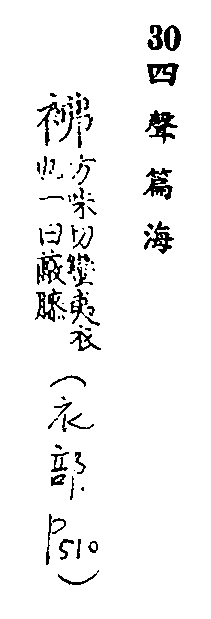 30四聲篇海
方味切蠻夷衣
也一曰蔽膝
(衣部P510)